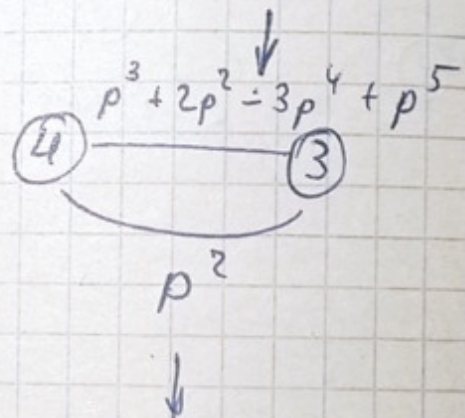 p³ + 2p² - 3p⁴ + p⁵
4 3
p²